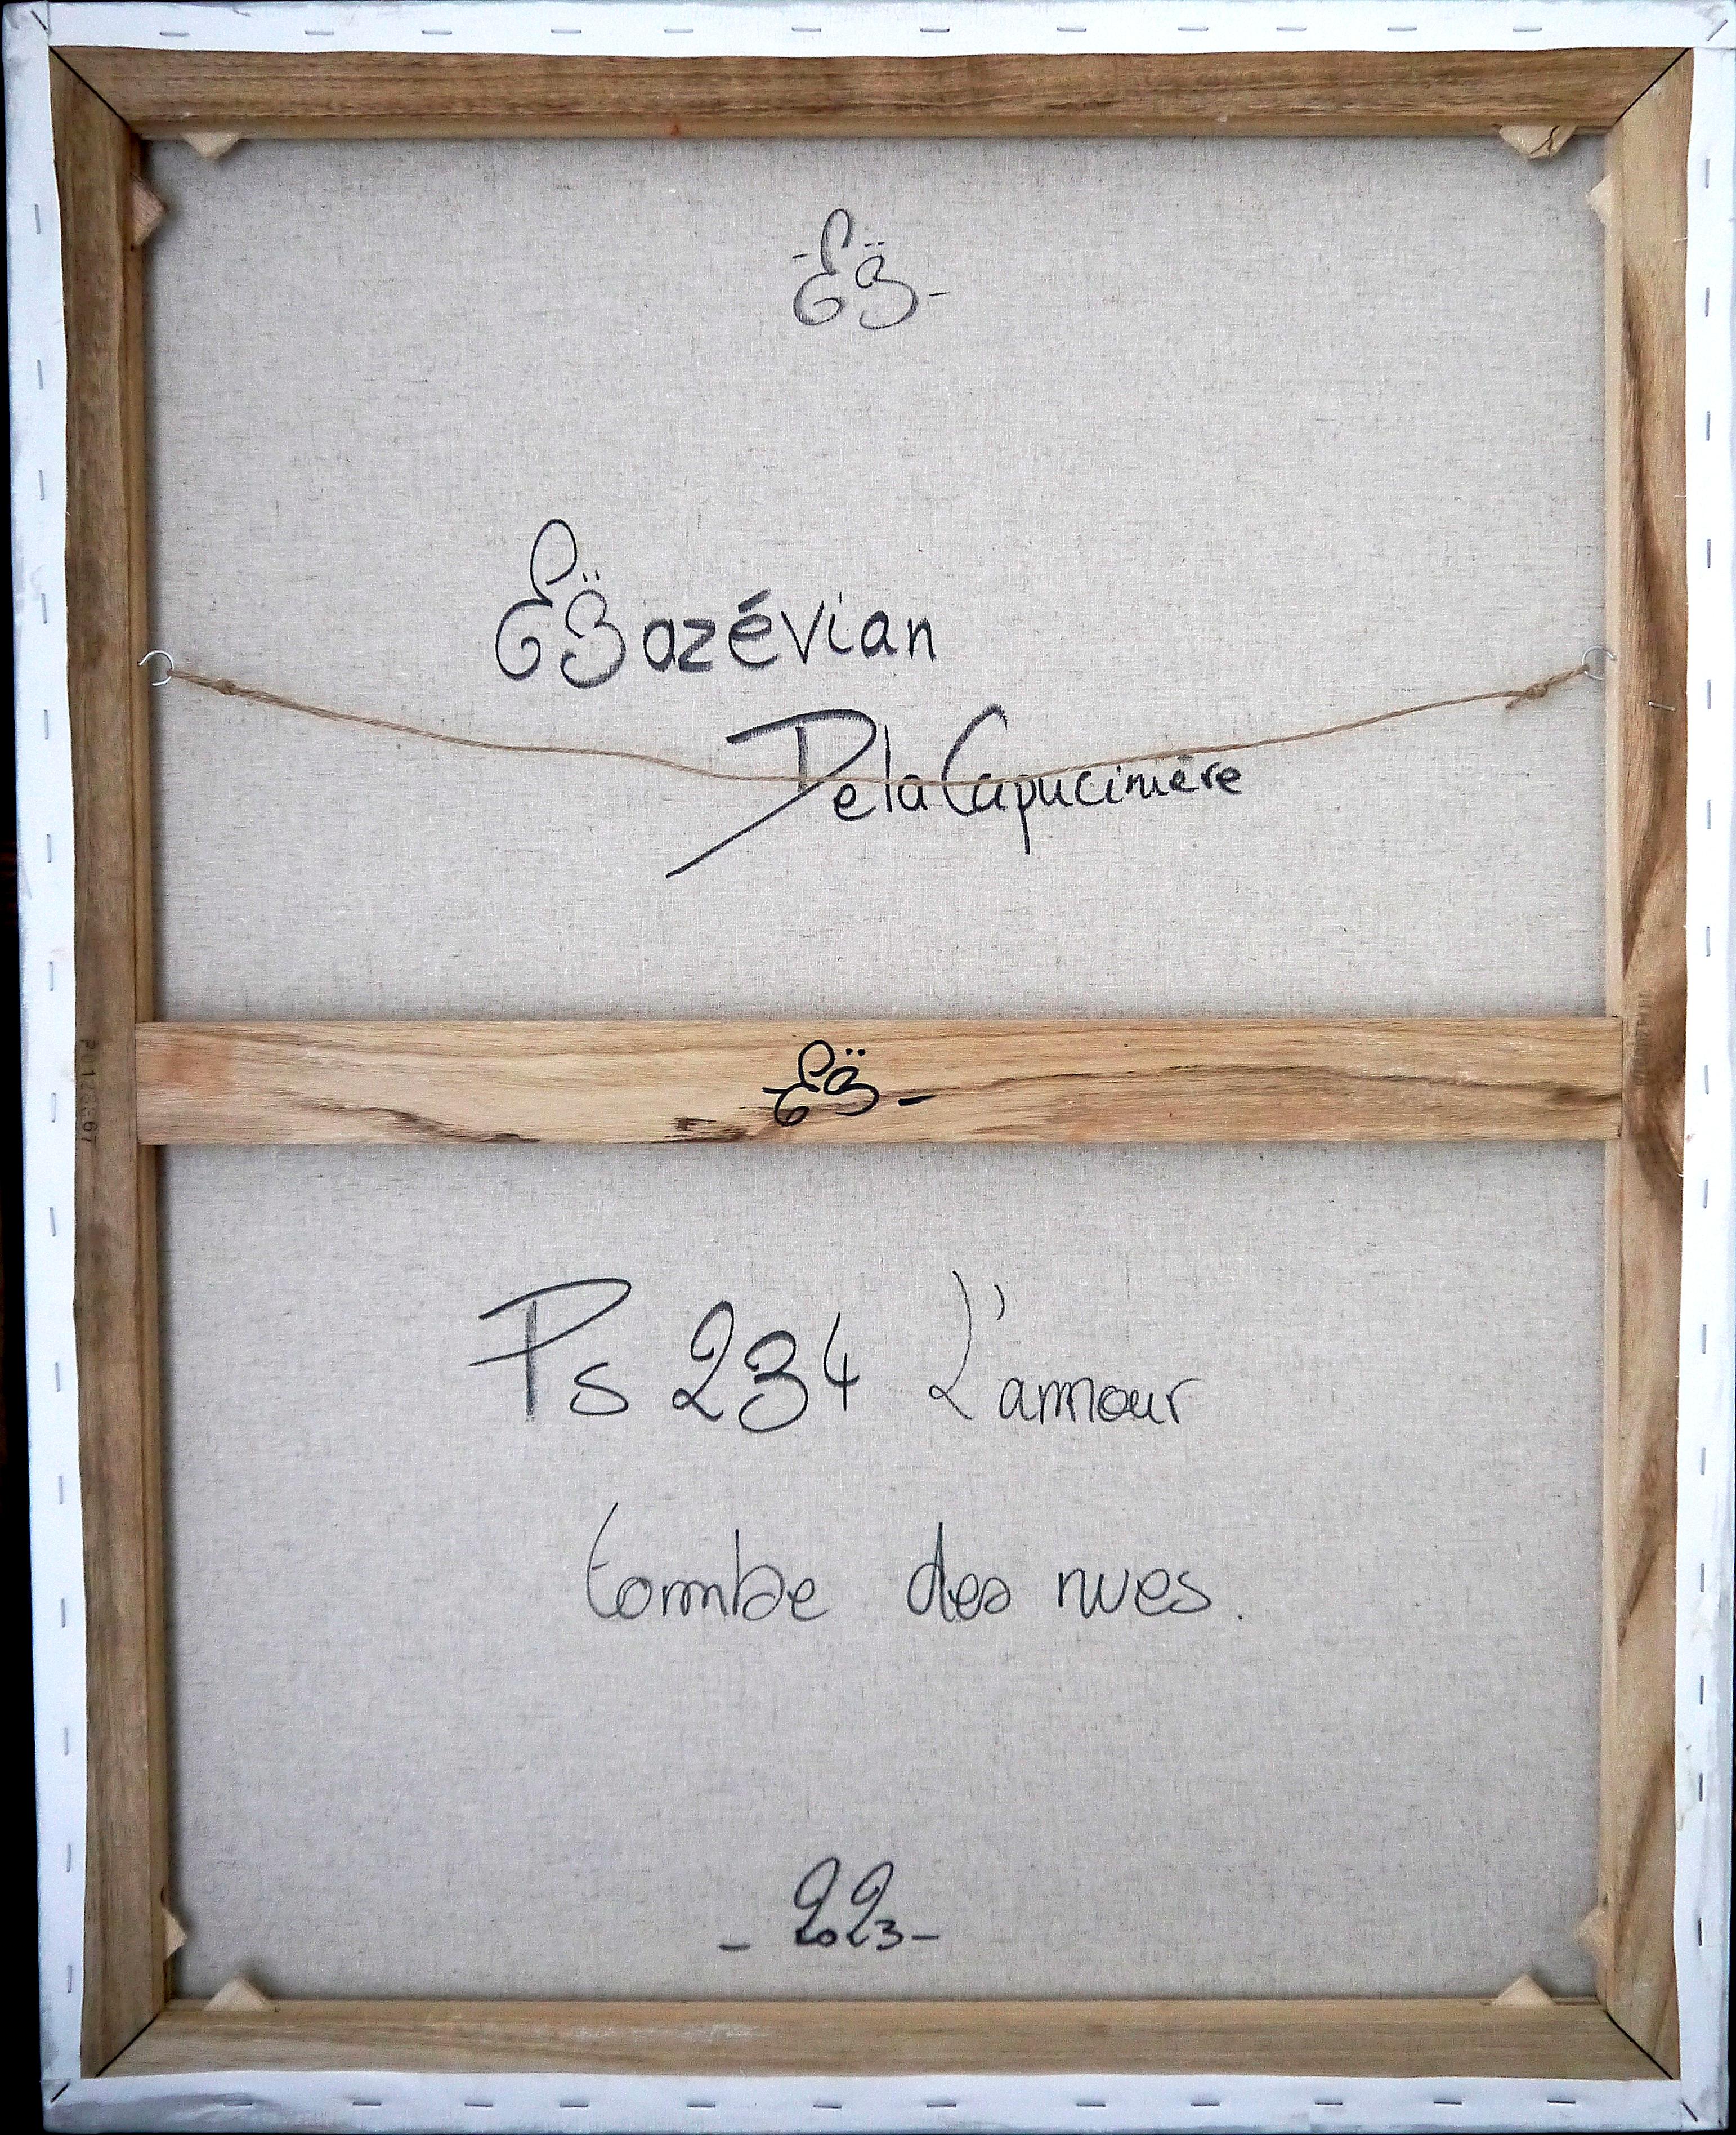 -EB̈-
EB̈azévian
DelaCapucinière
-EB̈-
Ps 234 L'amour
tombe des nues.
- 2023 -